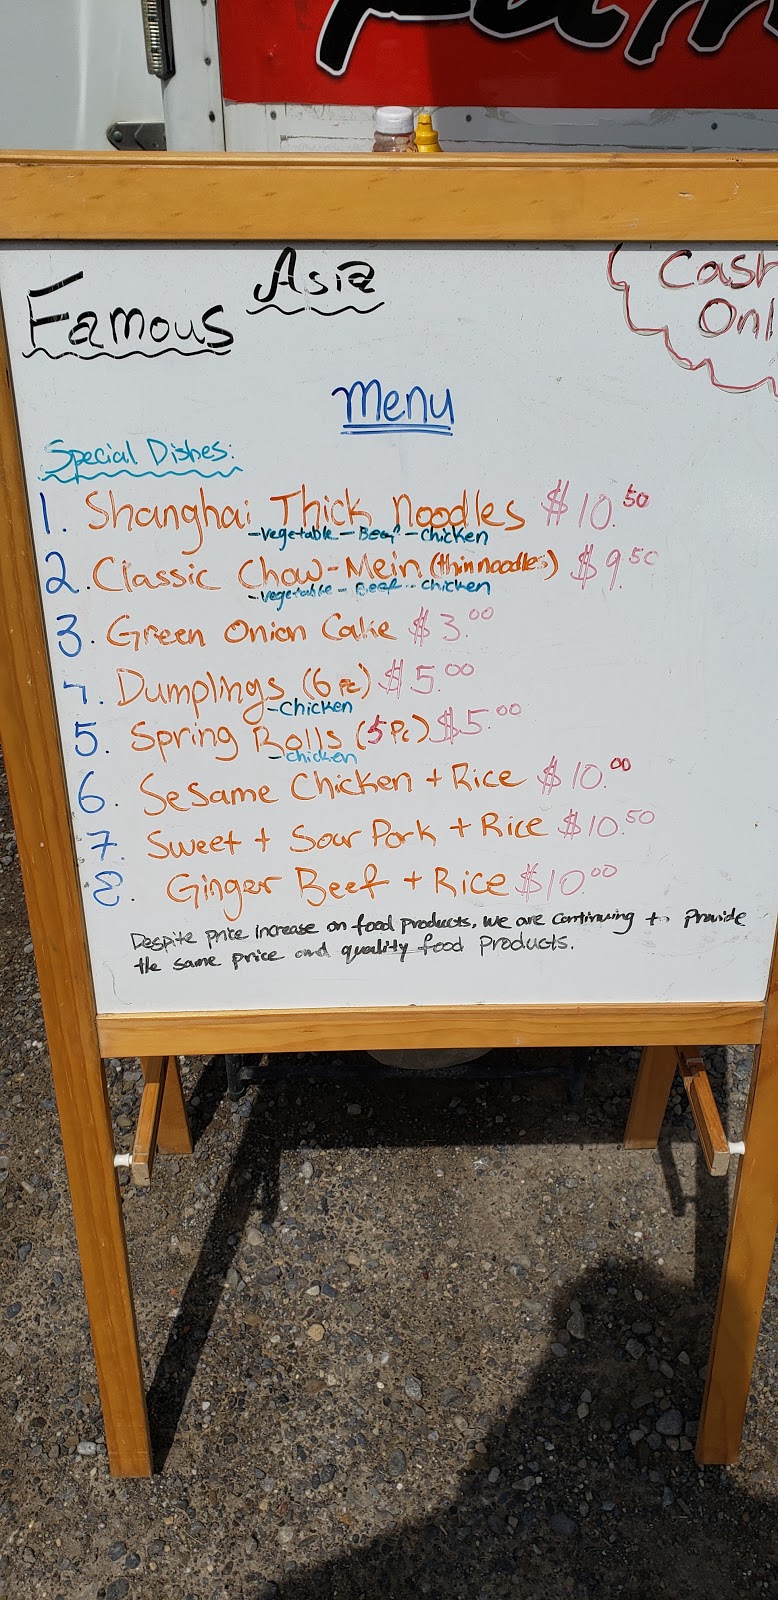 Famous Asia
Cash
Onl
Menu
Special Dishes:
1. Shanghai Thick Noodles $10.50
-vegetable - Beef - chicken
2. Classic Chow-Mein (thin noodles) $9.50
-vegetable - Beef - chicken
3. Green Onion Cake $3.00
4. Dumplings (6 pc) $5.00
-chicken
5. Spring Rolls (5 Pc) $5.00
-chicken
6. Sesame Chicken + Rice $10.00
7. Sweet + Sour Pork + Rice $10.50
8. Ginger Beef + Rice $10.00
Despite price increase on food products, we are continuing to provide
the same price and quality food products.